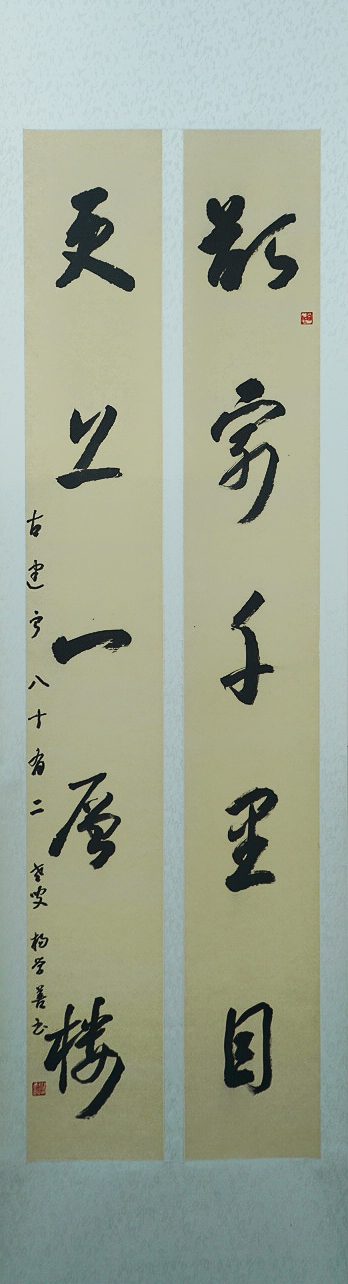 欲穷千里目
更上一层楼
古建宁八十有二老叟杨学善书